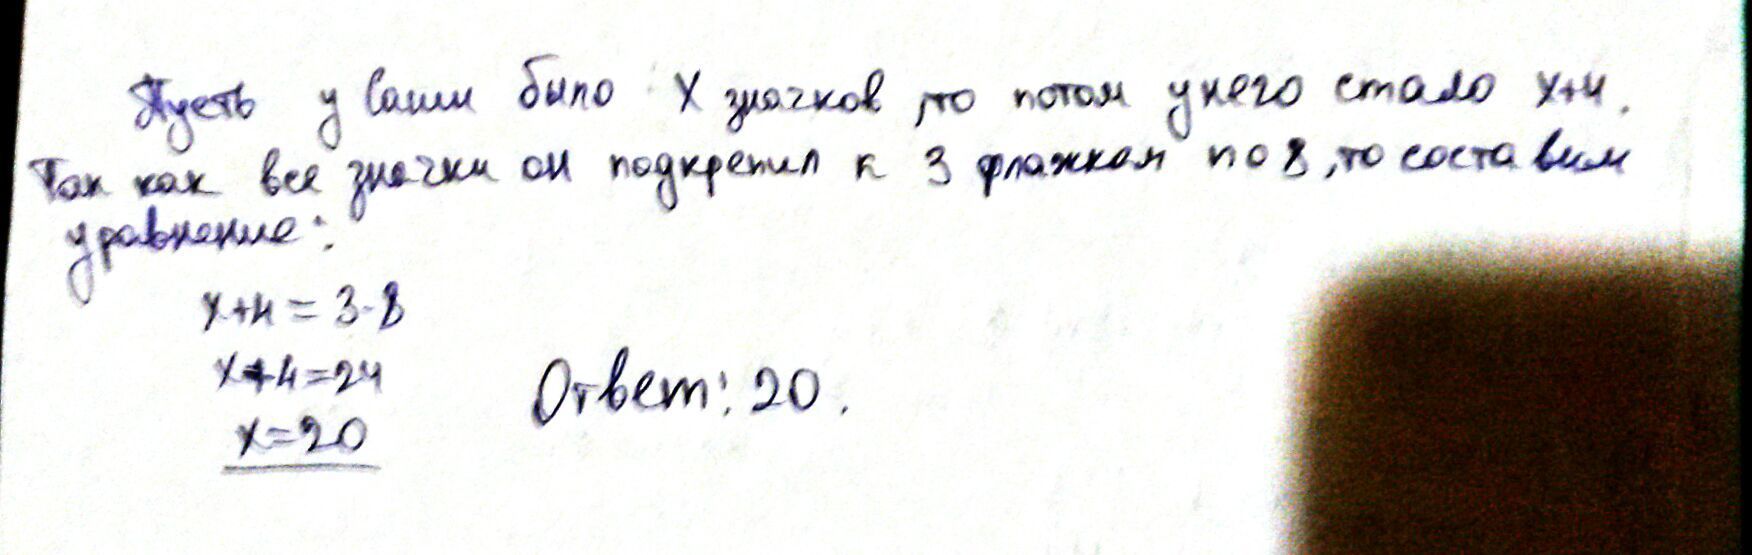 Пусть у Саши было X значков, то потом у него стало x+4.
Так как все значки он подкрепил к 3 флажкам по 8, то составим
уравнение:
x+4=3·8
x+4=24
x=20
Ответ: 20.